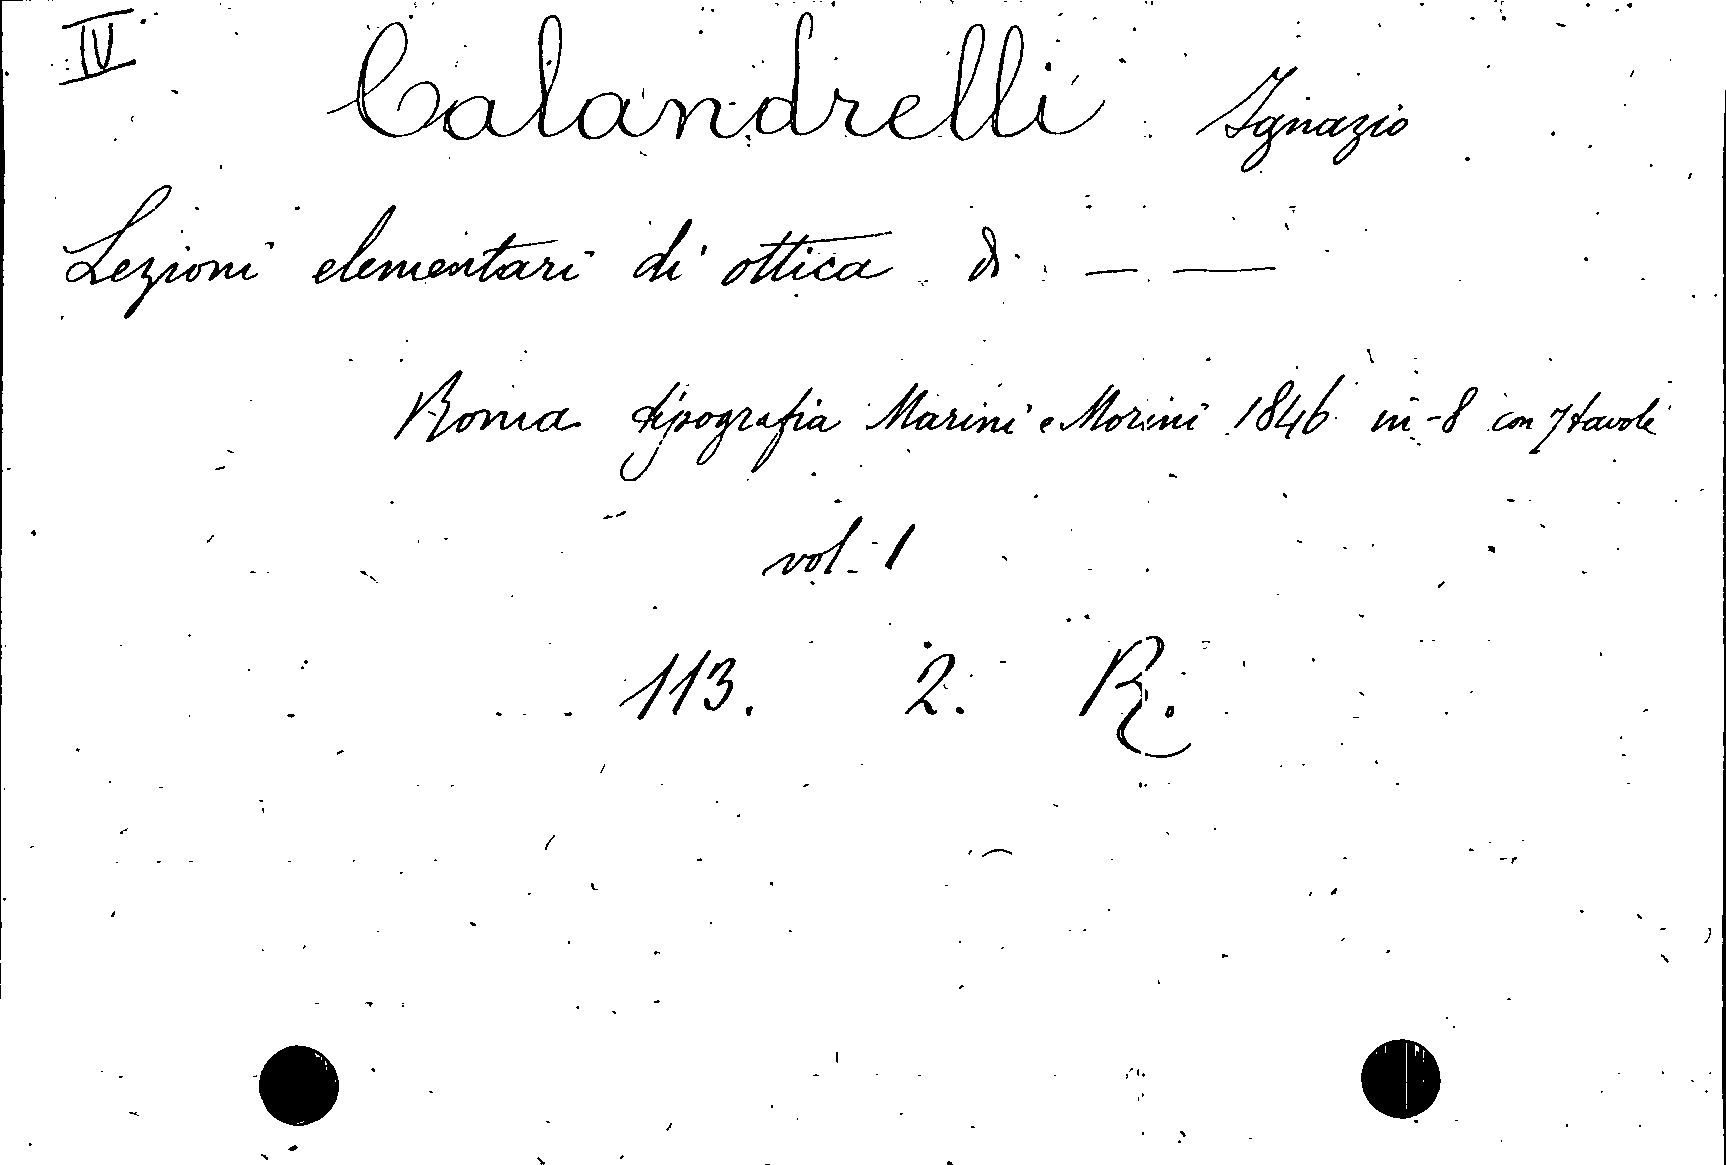 IV
Calandrelli Ignazio
Lezioni elementari di ottica di — —
Roma tipografia Marini e Morini 1846 in-8 con 7 tavole
vol. 1
113. 2. R.